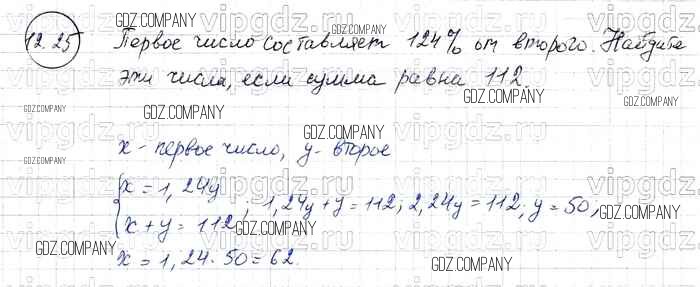 12.25 Первое число составляет 124% от второго. Найдите
эти числа, если сумма равна 112.
x - первое число, y - второе
{x = 1,24y
x + y = 112 ; 1,24y + y = 112; 2,24y = 112; y = 50,
x = 1,24 · 50 = 62.
GDZ.COMPANY
vipgdz.ru